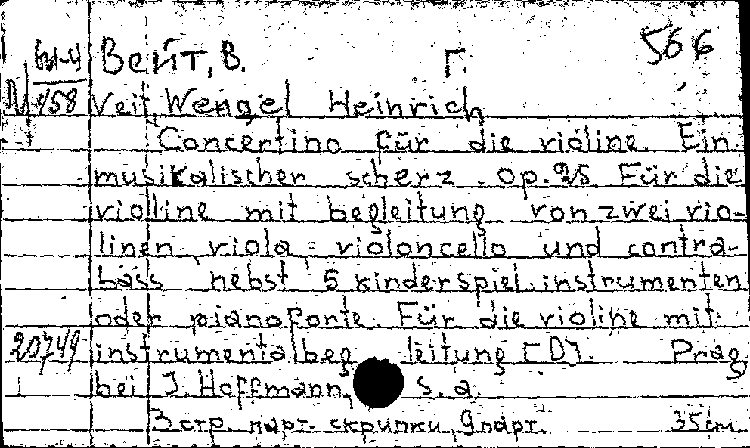 566
Бы-4 Вейт, В. Г.
N/158 Veit, Wengel Heinrich
Concertino für die violine. Ein
musikalischer scherz. op. 25. Für die
violine mit begleitung von zwei vio-
linen, viola, violoncello und contra-
bass nebst 5 kinderspiel.instrumenten
oder pianoforte. Für die violine mit
20749 instrumentalbeg leitung [D]. Prag
bei J. Hoffmann, s.a.
3 стр. парт. скрипки, 9 парт. 35 см.